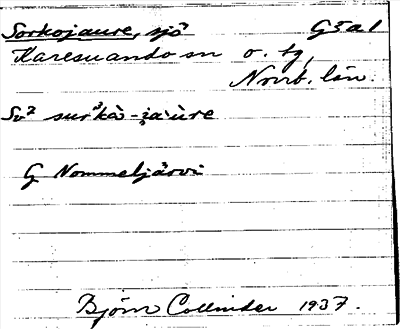 Sorkojaure, sjö G5a1
Karesuando sn o. tg,
Norrb. län.
Sv² surˀkà-ja·ùre
G Nommeljärvi
Björn Collinder 1937.